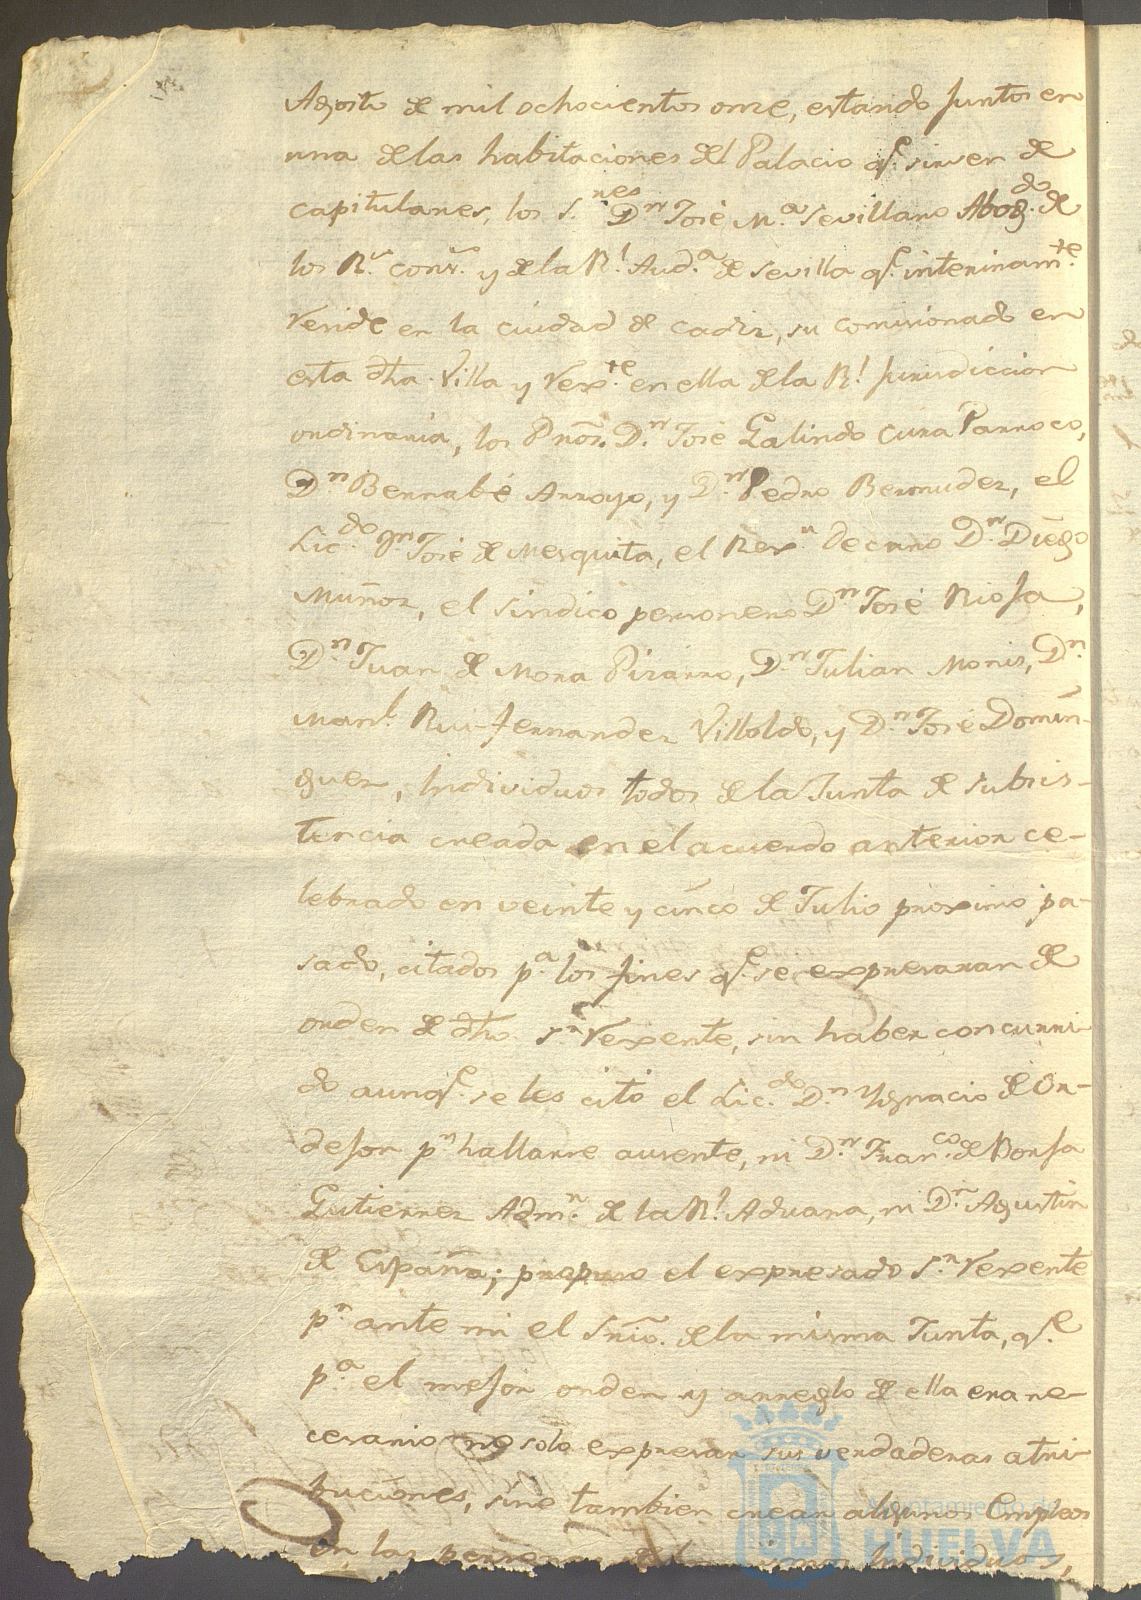 Agosto de mil ochocientos onze, estando juntos en
una de las habitaciones del Palacio q.e sirven de
capitulares, los S.res D.n José M.a Sevillano Abog.do de
los R.s cons.s y de la R.l Aud.a de Sevilla q.e interinam.te
reside en la ciudad de Cadiz, su comisionado en
esta dha. Villa y Rex.te en ella de la R.l Jurisdiccion
ordinaria, los Pros. D.n José Galindo Cura Parroco,
D.n Bernabé Arroyo, y D.n Pedro Bermudez, el
Lic.do D.n José de Mesquita, el Rex.r Decano D.n Diego
Muñoz, el sindico personero D.n José Rioja,
D.n Juan de Mora Pizarro, D.n Julian Monis, D.n
Man.l Rui-fernandez Villoldo, y D.n José Domin-
guez, Individuos todos de la Junta de subsis-
tencia creada en el acuerdo anterior ce-
lebrado en veinte y cinco de Julio proximo pa-
sado, citados p.a los fines q.e se expresaran de
orden de dho. S.r Rexente, sin haber concurri-
do aunq.e se les citó el Lic.do D.n Ygnacio de Or-
dejon p.r hallarse ausente, ni D.n Fran.co de Borja
Gutierrez Adm.r de la R.l Aduana, ni D.n Agustin
de España; propuso el expresado S.r Rexente
p.r ante mi el Srio. de la misma Junta, q.e
p.a el mejor orden y arreglo de ella era ne-
cesario no solo expresar sus verdaderas atri-
buciones, sino tambien crear algunos Empleos
en las personas de los mismos Individuos,
Ayuntamiento de
HUELVA